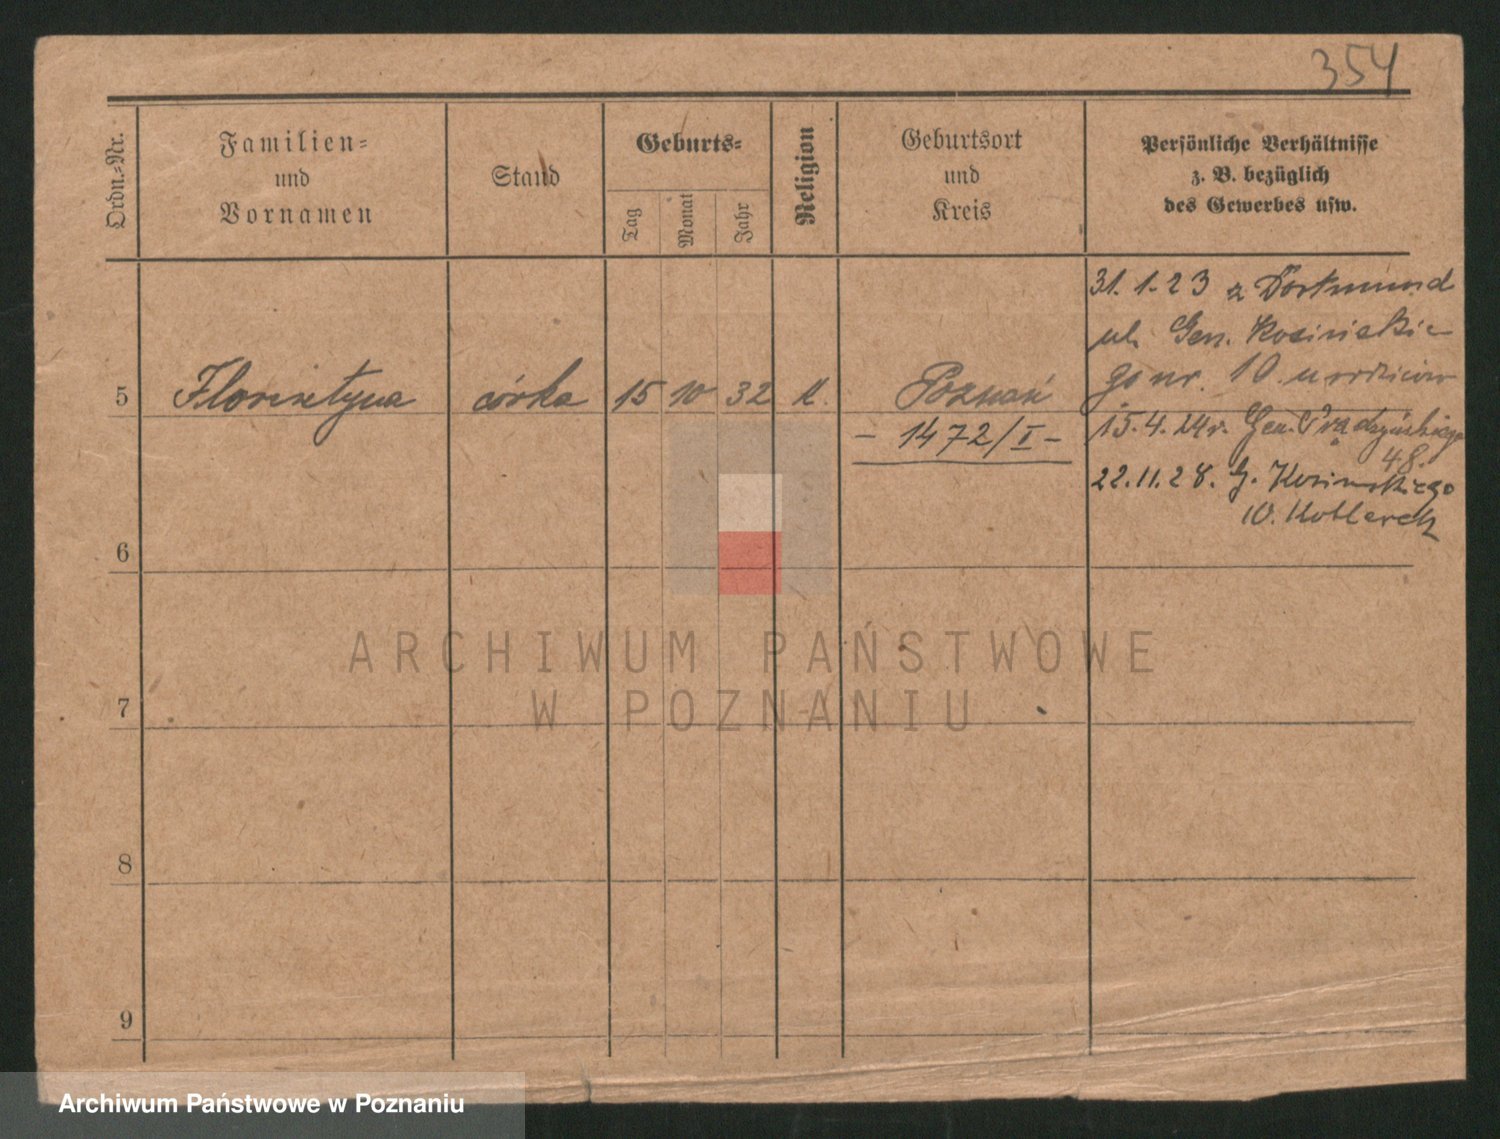 354
Ordn.-Nr.
Familien-
und
Vornamen
Stand
Geburts-
Tag
Monat
Jahr
Religion
Geburtsort
und
Kreis
Persönliche Verhältnisse
z. B. bezüglich
des Gewerbes usw.
31.1.23 z Dortmund
ul. Gen. Kosinskie
go nr. 10 u rodziców
5 Florentyna córka 15 10 32 k. Poznań
15.4.24r. Gen. Prądzyńskiego
48.
- 1472/I -
22.11.28. G. Kosinskiego
10.
6
7
8
9
ARCHIWUM PAŃSTWOWE
W POZNANIU
Archiwum Państwowe w Poznaniu